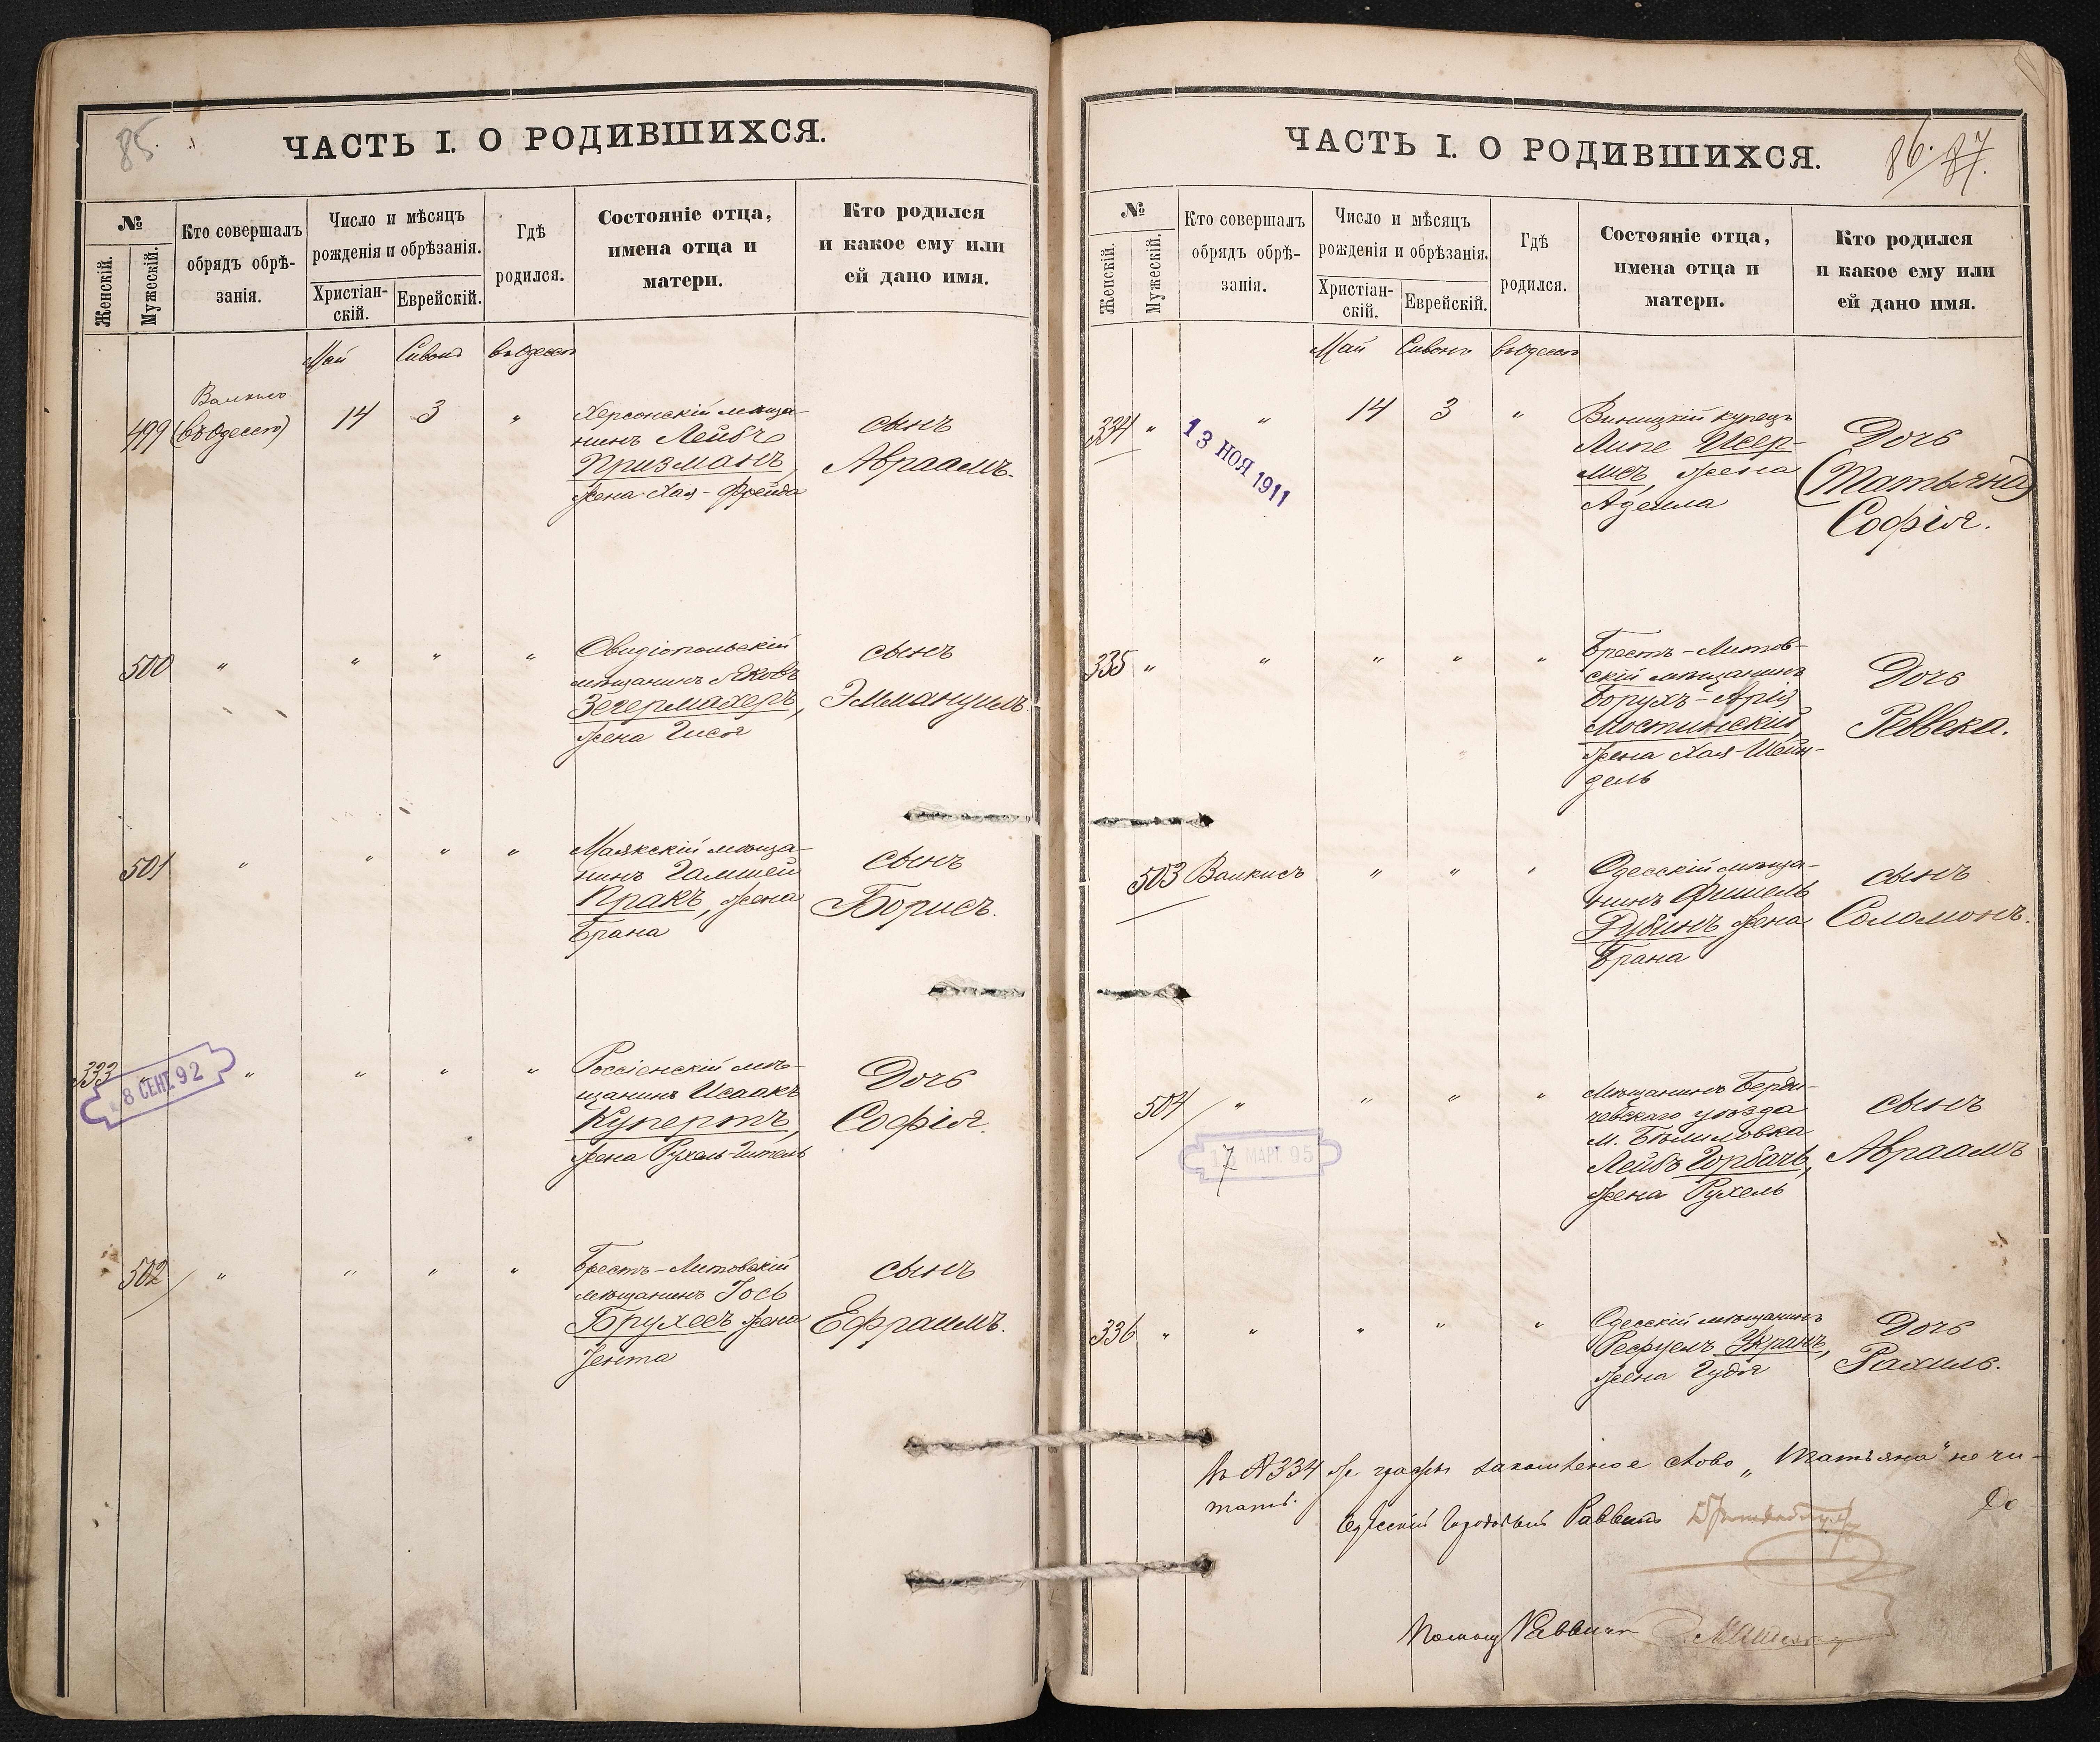 85.
ЧАСТЬ I. О РОДИВШИХСЯ.
№
Женскій.
Мужескій.
Кто совершалъ
обрядъ обрѣ-
занія.
Число и мѣсяцъ
рожденія и обрѣзанія.
Христіан-
скій.
Еврейскій.
Гдѣ
родился.
Состояніе отца,
имена отца и
матери.
Кто родился
и какое ему или
ей дано имя.
Май Сивонъ въ Одессѣ
499 Валкисъ (въ Одессѣ) 14 3 "
Херсонскій мѣща-
нинъ Лейбъ
Призманъ,
жена Хая-Фрейда
сынъ
Авраамъ.
500 " " " "
Овидіопольскій
мѣщанинъ Яковъ
Зегермахеръ,
жена Гися
сынъ
Эммануилъ.
501 " " " "
Маякскій мѣща-
нинъ
Пракъ, жена
Брана
сынъ
Борисъ.
333 " " " " "
8 СЕНТ. 92
Россіенскій мѣ-
щанинъ Исаакъ
Купертъ,
жена Рухель-Гитель
Дочь
Софія.
502 " " " "
Брестъ-Литовскій
мѣщанинъ Іось
Брухесъ жена
Іента
сынъ
Ефраимъ.
ЧАСТЬ I. О РОДИВШИХСЯ.
86. 87.
№
Женскій.
Мужескій.
Кто совершалъ
обрядъ обрѣ-
занія.
Число и мѣсяцъ
рожденія и обрѣзанія.
Христіан-
скій.
Еврейскій.
Гдѣ
родился.
Состояніе отца,
имена отца и
матери.
Кто родился
и какое ему или
ей дано имя.
Май Сивонъ въ Одессѣ
334 " " 14 3 "
13 НОЯ 1911
Виницкій купецъ
Липе
жена
Аделла
Дочь
(Татьяна)
Софія.
335 " " " " "
Брестъ-Литов-
скій мѣщанинъ
Борухъ-Арія
Мостинскій,
жена Хая-Шейн-
дель
Дочь
Реввека.
503 Валкисъ " " "
Одесскій мѣща-
нинъ Фишель
Рубинъ жена
Брана
сынъ
Соломонъ.
504 " " " "
17 МАРТ. 95
Мѣщанинъ Берди-
чевскаго уѣзда
м. Бѣлиловка
Лейбъ Горбачъ,
жена Рухель
сынъ
Авраамъ
336 " " " " "
Одесскій мѣщанинъ
жена Гудя
Дочь
Рахиль.
въ № 334 графѣ слово „Татьяна" не чи-
тать.
Одесскій Городовый Раввинъ
Помощ Раввина